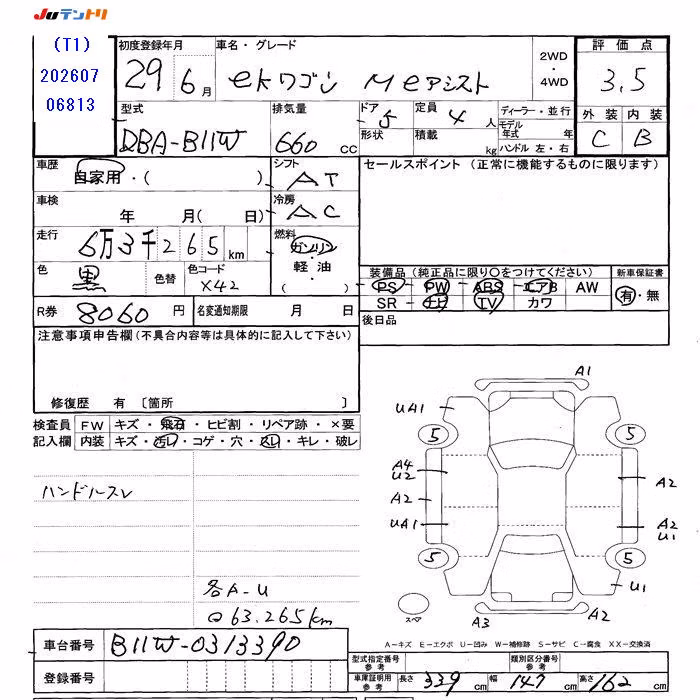 JUテントリ
(T1)
202607
06813
初度登録年月 29 6月
車名・グレード ekワゴン Meアシスト
2WD・4WD
評価点 3,5
外装 内装
C B
型式 DBA-B11W
排気量 660 CC
ドア 5
形状
定員 4 人
積載 kg
ディーラー・並行
モデル年式 年
ハンドル 左・右
車歴 自家用・( )
シフト AT
セールスポイント (正常に機能するものに限ります)
車検 年 月( 日)
冷房 AC
走行 6万3千265km
燃料 ガソリン・軽油・( )
色 黒 色替 色コード X42
装備品 (純正品に限り○をつけてください) 新車保証書
PS PW ABS エアB AW 有・無
SR ナビ TV カワ
R券 8060 円 名変通知期限 月 日
後日品
注意事項申告欄(不具合内容等は具体的に記入して下さい)
修復歴 有 〔箇所 〕
検査員記入欄
FW キズ・飛石・ヒビ割・リペア跡・×要
内装 キズ・汚レ・コゲ・穴・スレ・キレ・破レ
ハンドルスレ
各A-U
63.265km
A1
UA1
5 5
A4
U2
A2
A2
UA1
A2
U1
5 5
U1
スペア
A3
A2
A-キズ E-エクボ U-凹み W-補修跡 S-サビ C-腐食 XX-交換済
車台番号 B11W-0313390
登録番号
型式指定番号参考 類別区分番号参考
車庫証明用参考 長さ 339 cm 幅 147 cm 高さ 162 cm